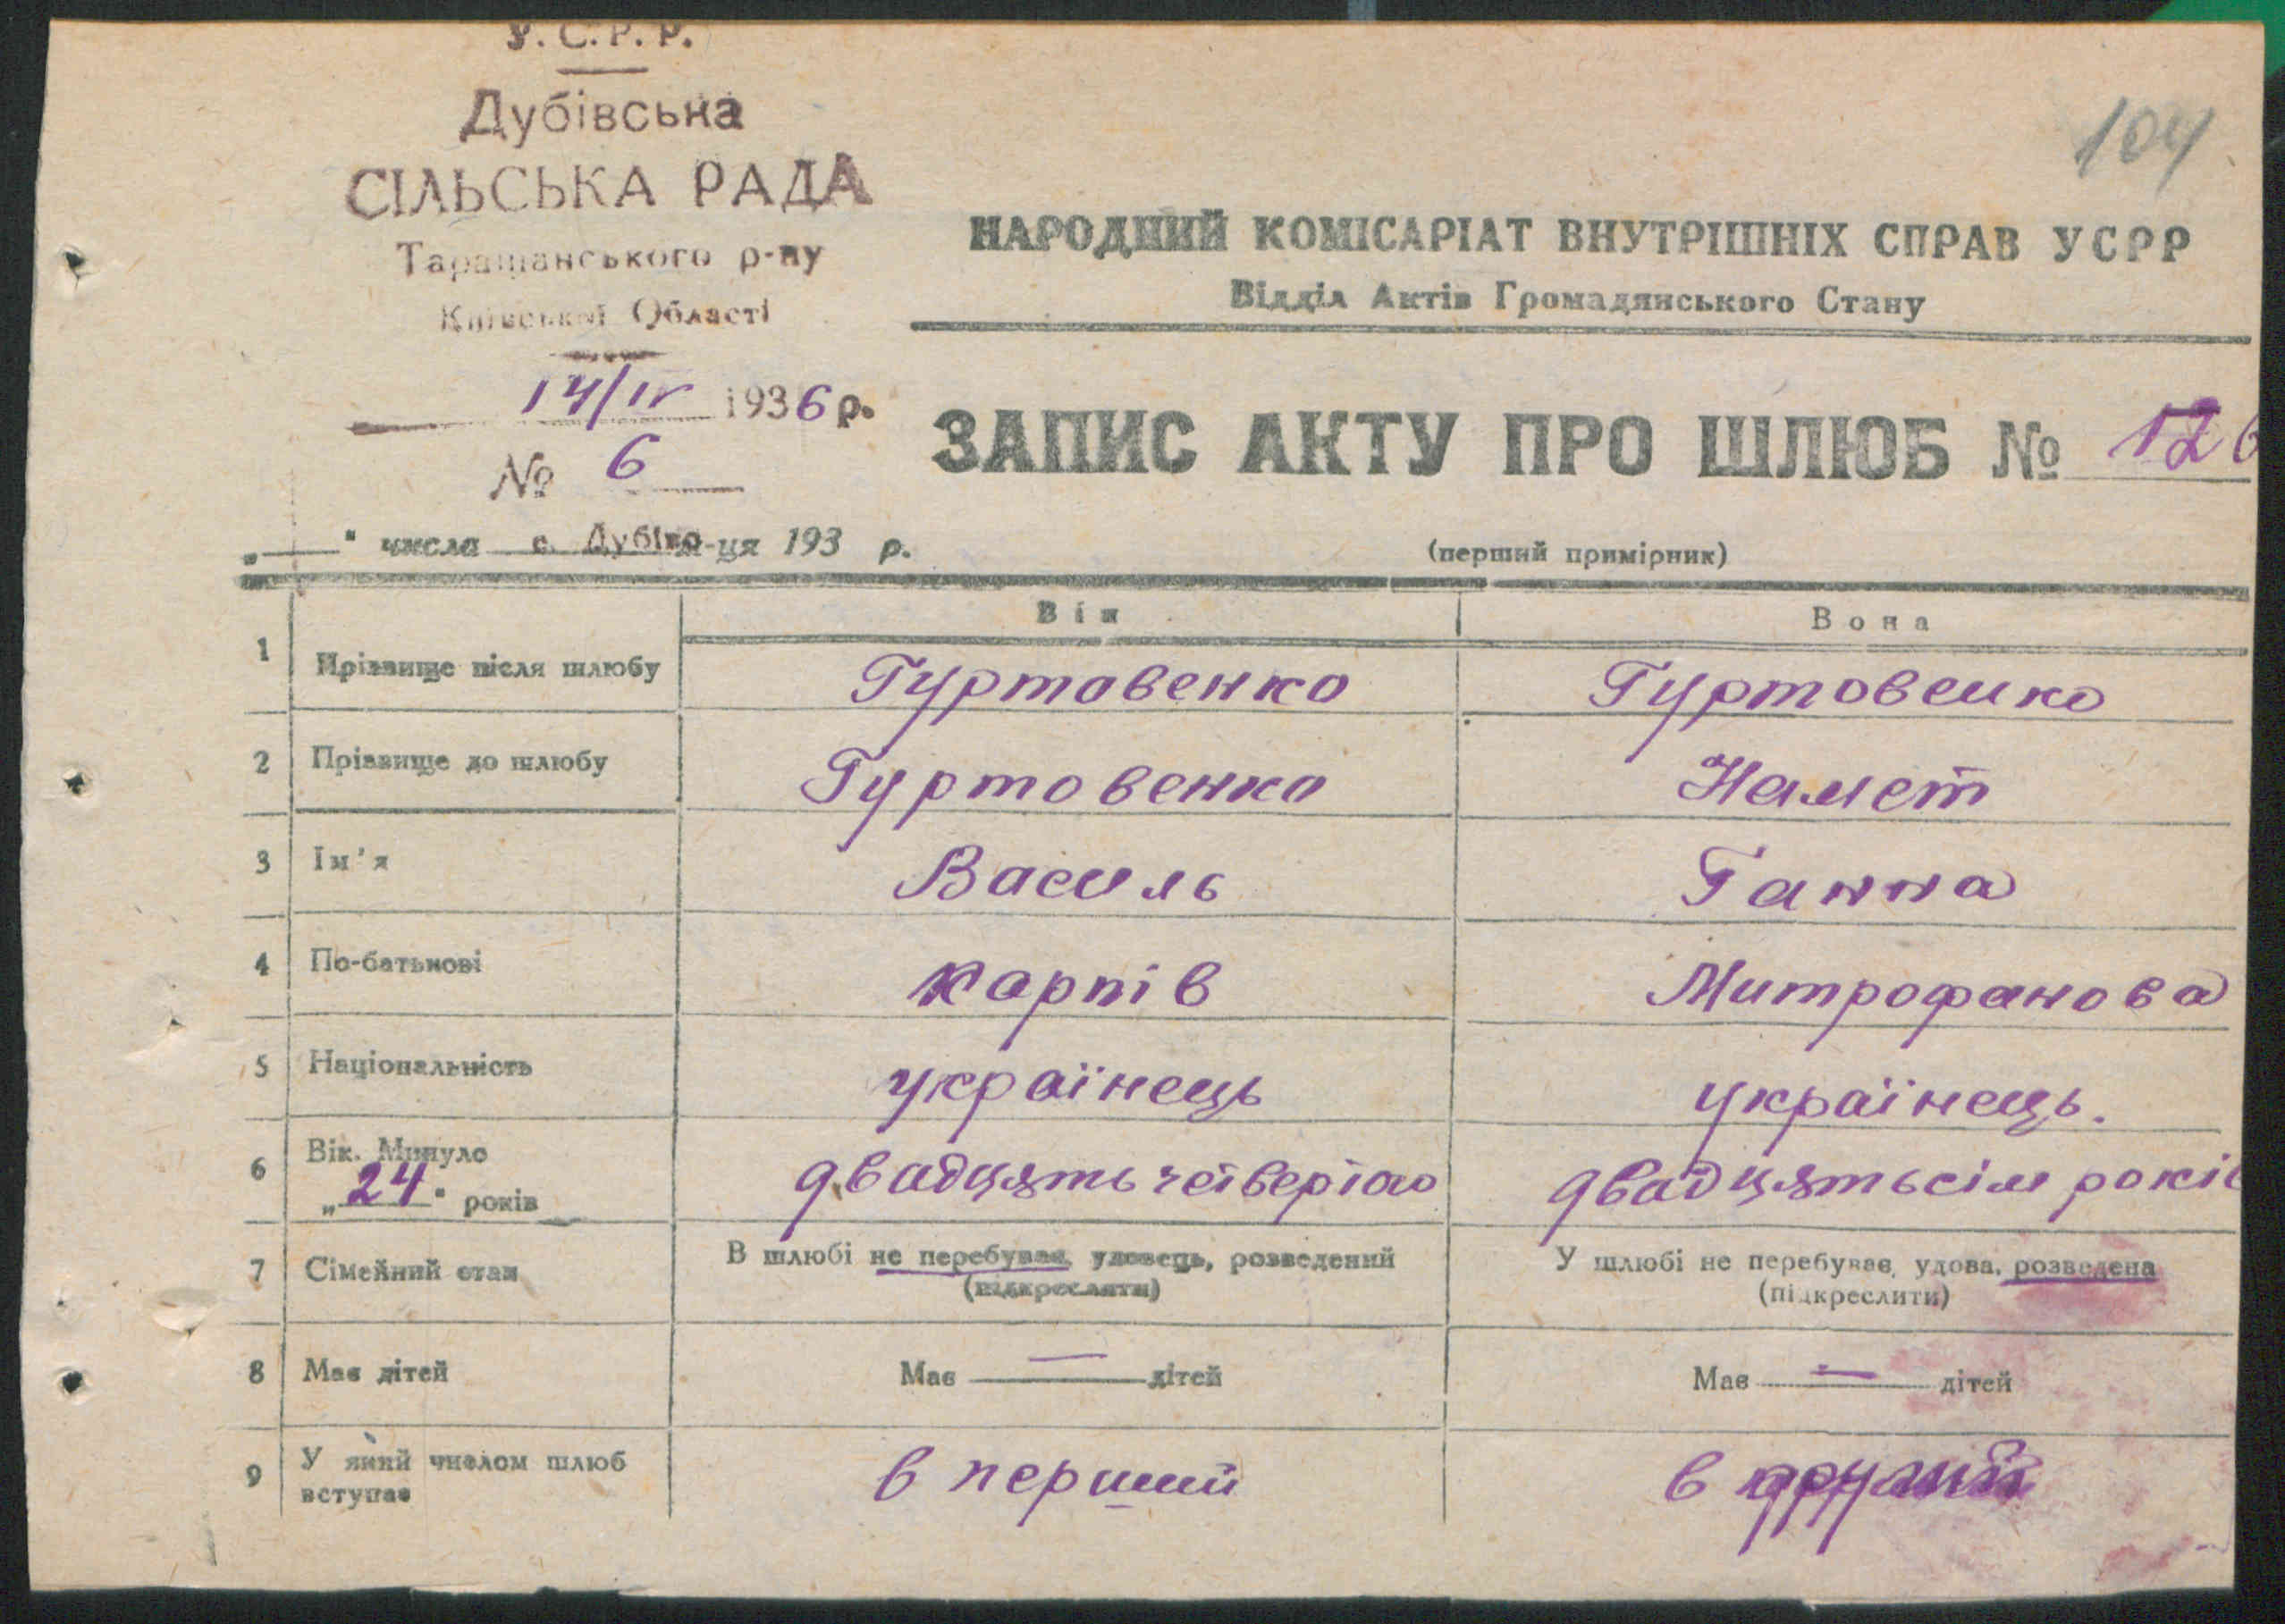 У.С.Р.Р.
Дубівська
СІЛЬСЬКА РАДА
Таращанського р-ну
Київської Області
14/IV 1936 р.
№ 6
104
НАРОДНИЙ КОМІСАРІАТ ВНУТРІШНІХ СПРАВ УСРР
Відділ Актів Громадянського Стану
ЗАПИС АКТУ ПРО ШЛЮБ № 126
„ “ числа с. Дубівка м-ця 193 р.
(перший примірник)
Він Вона
1 Прізвище після шлюбу Гуртовенко Гуртовенко
2 Прізвище до шлюбу Гуртовенко Намет
3 Ім'я Василь Ганна
4 По-батькові Карпів Митрофанова
5 Національність українець українець.
6 Вік. Минуло двадцять четвертао двадцятьсім років
„24“ років
7 Сімейний стан В шлюбі не перебуває, удовець, розведений У шлюбі не перебуває, удова, розведена
(підкреслити) (підкреслити)
8 Має дітей Має — дітей Має — дітей
9 У який числом шлюб вступає в перший в другий